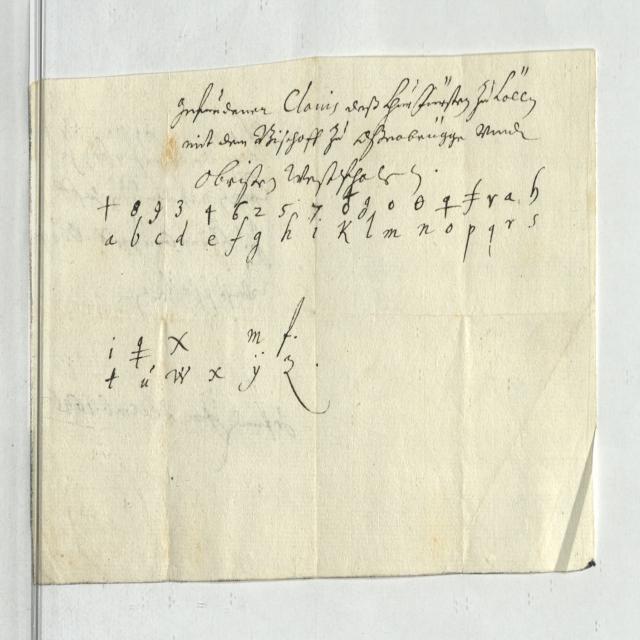 gefundener Clavis deß Chur Fürsten zu Cölln
mit dem Bischoff zu Oßnabrügge Vnndt
Obristen Westphalen.
+ 8 9 3 4 6 2 5 7 g o θ q ‡ r a h
a b c d e f g h i K l m n o p q r s
i ‡ X m f.
t ú w x ÿ z